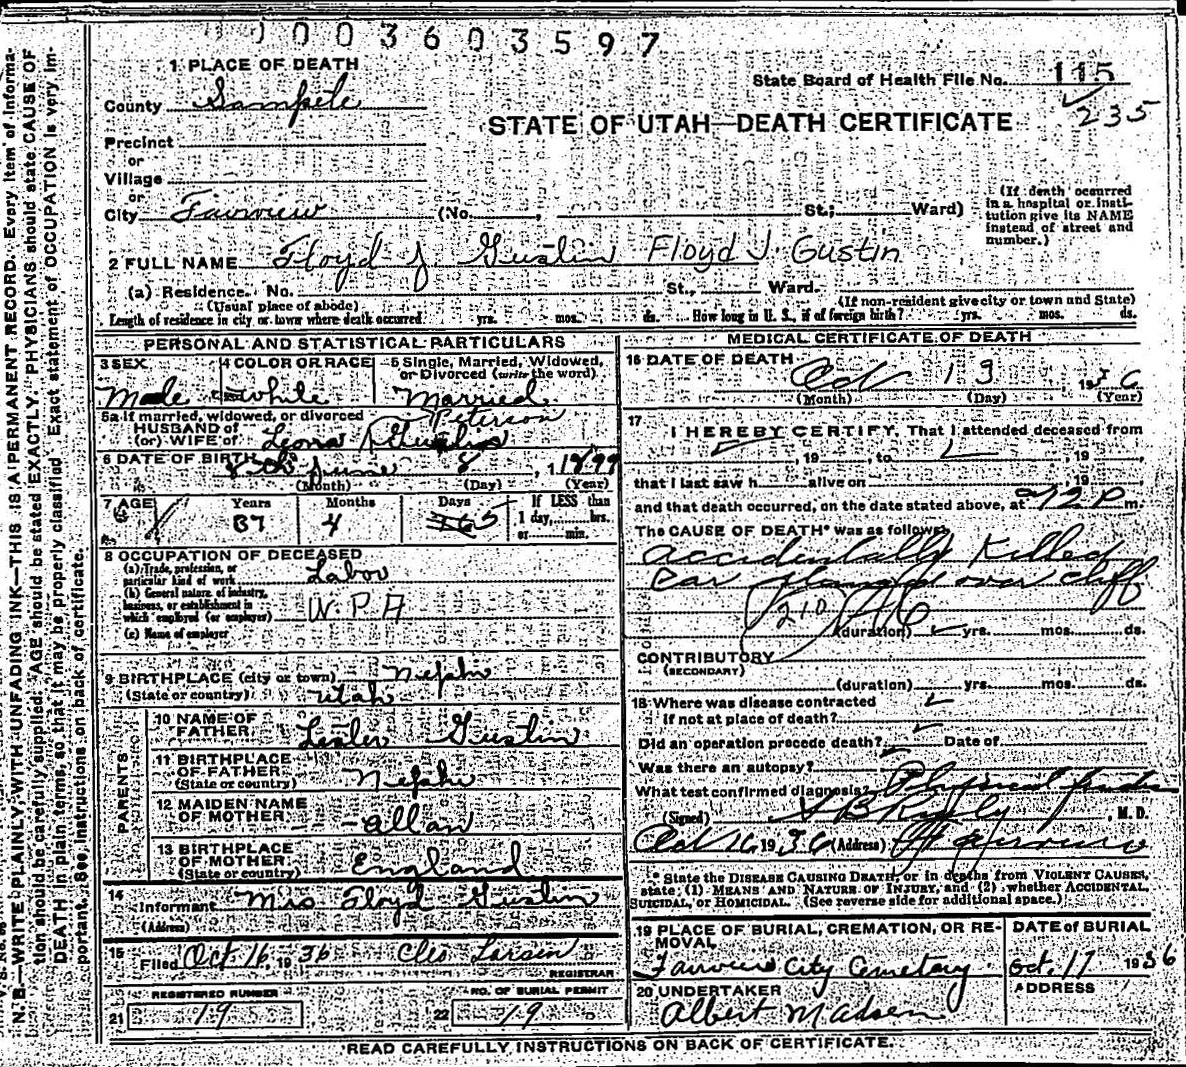 1003603597
1 PLACE OF DEATH
State Board of Health File No. 115
235
County Sanpete
STATE OF UTAH—DEATH CERTIFICATE
Precinct
or
Village
or
City Fairview (No. , St.; Ward)
(If death occurred in a hospital or institution give its NAME instead of street and number.)
2 FULL NAME Floyd J Gustin Floyd J. Gustin
(a) Residence. No. St., Ward.
(Usual place of abode) (If non-resident give city or town and State)
Length of residence in city or town where death occurred yrs. mos. ds. How long in U. S., if of foreign birth? yrs. mos. ds.
PERSONAL AND STATISTICAL PARTICULARS
3 SEX 4 COLOR OR RACE 5 Single, Married, Widowed, or Divorced (write the word)
Male white Married
5a If married, widowed, or divorced Peterson
HUSBAND of
(or) WIFE of Leona Gustin
6 DATE OF BIRTH 8th June 8, 1899
(Month) (Day) (Year)
7 AGE Years Months Days If LESS than
1 day, hrs.
or min.
37 4 5
8 OCCUPATION OF DECEASED
(a) Trade, profession, or
particular kind of work Labor
(b) General nature of industry,
business, or establishment in
which employed (or employer) W.P.A
(c) Name of employer
9 BIRTHPLACE (city or town) Nephi
(State or country) Utah
PARENTS
10 NAME OF
FATHER Lester Gustin
11 BIRTHPLACE
OF FATHER
(State or country) Nephi
12 MAIDEN NAME
OF MOTHER - Allan
13 BIRTHPLACE
OF MOTHER
(State or country) England
14 Informant Mrs Floyd Gustin
(Address)
15 Filed Oct. 16, 1936 Cleo Larsen
REGISTRAR
REGISTERED NUMBER NO. OF BURIAL PERMIT
21 19 22 19
MEDICAL CERTIFICATE OF DEATH
16 DATE OF DEATH Oct 13, 1936
(Month) (Day) (Year)
17
I HEREBY CERTIFY, That I attended deceased from
, 19 , to , 19 ,
that I last saw h alive on , 19 ,
and that death occurred, on the date stated above, at P m.
The CAUSE OF DEATH* was as follows:
accidentally Killed
Car plunged over cliff
210
(duration) yrs. mos. ds.
CONTRIBUTORY
(SECONDARY)
(duration) yrs. mos. ds.
18 Where was disease contracted
if not at place of death?
Did an operation precede death? Date of
Was there an autopsy?
What test confirmed diagnosis? Physical
(Signed) , M. D.
Oct 16, 1936 (Address)
* State the DISEASE CAUSING DEATH, or in deaths from VIOLENT CAUSES,
state (1) MEANS AND NATURE OF INJURY, and (2) whether ACCIDENTAL,
SUICIDAL, or HOMICIDAL. (See reverse side for additional space.)
19 PLACE OF BURIAL, CREMATION, OR RE-
MOVAL
DATE of BURIAL
Fairview City Cemetery Oct. 17 1936
20 UNDERTAKER ADDRESS
Albert Madsen
READ CAREFULLY INSTRUCTIONS ON BACK OF CERTIFICATE.
N. B.—WRITE PLAINLY WITH UNFADING INK—THIS IS A PERMANENT RECORD. Every item of informa-
tion should be carefully supplied. AGE should be stated EXACTLY. PHYSICIANS should state CAUSE OF
DEATH in plain terms, so that it may be properly classified. Exact statement of OCCUPATION is very im-
portant. See instructions on back of certificate.